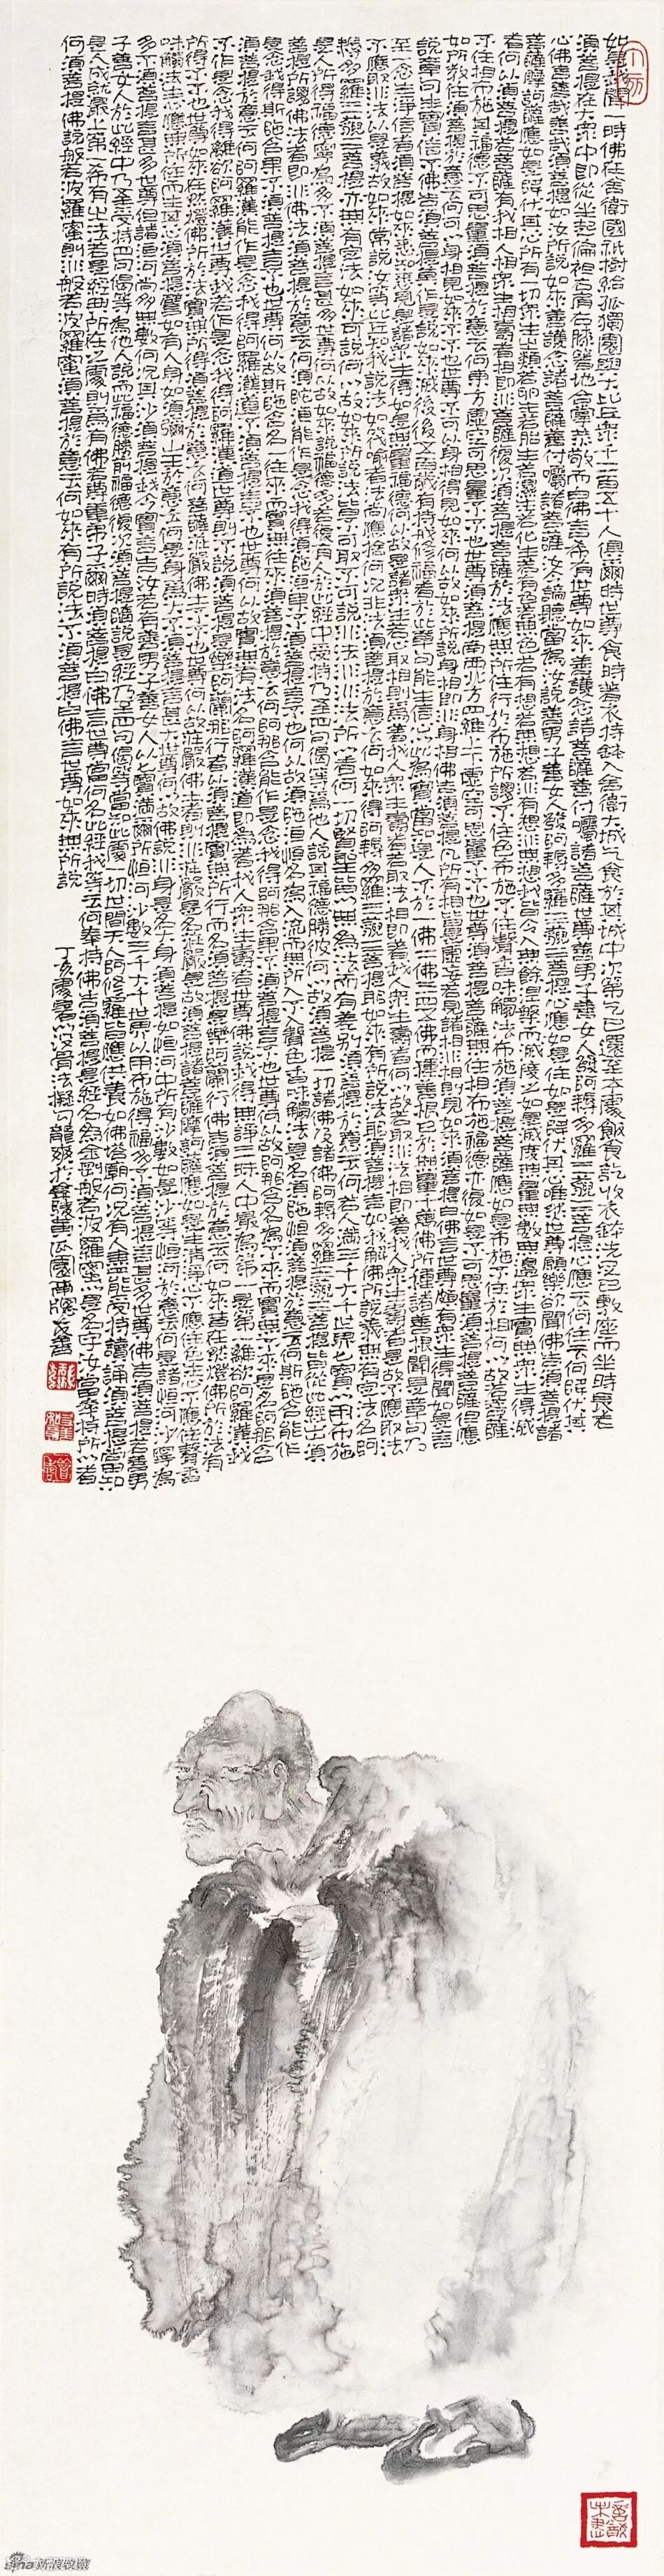 如是我聞一時佛在舍衛國祇樹給孤獨園與大比丘眾千二百五十人俱爾時世尊食時著衣持鉢入舍衛大城乞食於其城中次第乞已還至本處飯食訖收衣鉢洗足已敷座而坐時長老
須菩提在大眾中即從坐起偏袒右肩右膝著地合掌恭敬而白佛言希有世尊如來善護念諸菩薩善付囑諸菩薩世尊善男子善女人發阿耨多羅三藐三菩提心應云何住云何降伏其
心佛言善哉善哉須菩提如汝所說如來善護念諸菩薩善付囑諸菩薩汝今諦聽當為汝說善男子善女人發阿耨多羅三藐三菩提心應如是住如是降伏其心唯然世尊願樂欲聞佛告須菩提諸
菩薩摩訶薩應如是降伏其心所有一切眾生之類若卵生若胎生若濕生若化生若有色若無色若有想若無想若非有想非無想我皆令入無餘涅槃而滅度之如是滅度無量無數無邊眾生實無眾生得滅度
者何以故須菩提若菩薩有我相人相眾生相壽者相即非菩薩復次須菩提菩薩於法應無所住行於布施所謂不住色布施不住聲香味觸法布施須菩提菩薩應如是布施不住於相何以故若菩薩
不住相布施其福德不可思量須菩提於意云何東方虛空可思量不不也世尊須菩提南西北方四維上下虛空可思量不不也世尊須菩提菩薩無住相布施福德亦復如是不可思量須菩提菩薩但應
如所教住須菩提於意云何可以身相見如來不不也世尊不可以身相得見如來何以故如來所說身相即非身相佛告須菩提凡所有相皆是虛妄若見諸相非相則見如來須菩提白佛言世尊頗有眾生得聞如是言
說章句生實信不佛告須菩提莫作是說如來滅後後五百歲有持戒修福者於此章句能生信心以此為實當知是人不於一佛二佛三四五佛而種善根已於無量千萬佛所種諸善根聞是章句乃
至一念生淨信者須菩提如來悉知悉見是諸眾生得如是無量福德何以故是諸眾生若心取相則為著我人眾生壽者若取法相即著我人眾生壽者何以故若取非法相即著我人眾生壽者是故不應取法
不應取非法以是義故如來常說汝等比丘知我說法如筏喻者法尚應捨何況非法須菩提於意云何如來得阿耨多羅三藐三菩提耶如來有所說法耶須菩提言如我解佛所說義無有定法名阿
耨多羅三藐三菩提亦無有定法如來可說何以故如來所說法皆不可取不可說非法非非法所以者何一切賢聖皆以無為法而有差別須菩提於意云何若人滿三千大千世界七寶以用布施
是人所得福德寧為多不須菩提言甚多世尊何以故如來說福德多若復有人於此經中受持乃至四句偈等為他人說其福德勝彼何以故須菩提一切諸佛及諸佛阿耨多羅三藐三菩提皆從此經出須
菩提所謂佛法者即非佛法須菩提於意云何須陀洹能作是念我得須陀洹果不須菩提言不也世尊何以故須陀洹名為入流而無所入不入色聲香味觸法是名須陀洹須菩提於意云何斯陀含能作
是念我得斯陀含果不須菩提言不也世尊何以故斯陀含名一往來而實無往來須菩提於意云何阿那含能作是念我得阿那含果不須菩提言不也世尊何以故阿那含名為不來而實無不來是名阿那含
須菩提於意云何阿羅漢能作是念我得阿羅漢道不須菩提言不也世尊何以故實無有法名阿羅漢道即為著我人眾生壽者世尊佛說我得無諍三昧人中最為第一是第一離欲阿羅漢我
不作是念我得離欲阿羅漢世尊我若作是念我得阿羅漢道世尊則不說須菩提是樂阿蘭那行者以須菩提實無所行而名須菩提是樂阿蘭那行佛告須菩提於意云何如來昔在然燈佛所於法有
所得不不也世尊如來在然燈佛所於法實無所得須菩提於意云何菩薩莊嚴佛土不不也世尊何以故莊嚴佛土者則非莊嚴是名莊嚴是故須菩提諸菩薩摩訶薩應如是生清淨心不應住色生心不應住聲香
味觸法生心應無所住而生其心須菩提譬如有人身如須彌山王於意云何是身為大不須菩提言甚大世尊何以故佛說非身是名大身須菩提如恒河中所有沙數如是沙等恒河於意云何是諸恒河沙寧為
多不須菩提言甚多世尊但諸恒河尚多無數何況其沙須菩提我今實言告汝若有善男子善女人以七寶滿爾所恒河沙數三千大千世界以用布施得福多不須菩提言甚多世尊佛告須菩提若善男
子善女人於此經中乃至受持四句偈等為他人說而此福德勝前福德復次須菩提隨說是經乃至四句偈等當知此處一切世間天人阿修羅皆應供養如佛塔廟何況有人盡能受持讀誦須菩提當知
是人成就最上第一希有之法若是經典所在之處則為有佛若尊重弟子爾時須菩提白佛言世尊當何名此經我等云何奉持佛告須菩提是經名為金剛般若波羅蜜以是名字汝當奉持所以者
何須菩提佛說般若波羅蜜則非般若波羅蜜須菩提於意云何如來有所說法不須菩提白佛言世尊如來無所說
丁亥處暑以沒骨法擬句龍爽於金陵黃瓜園西牖友善
sina新浪收藏